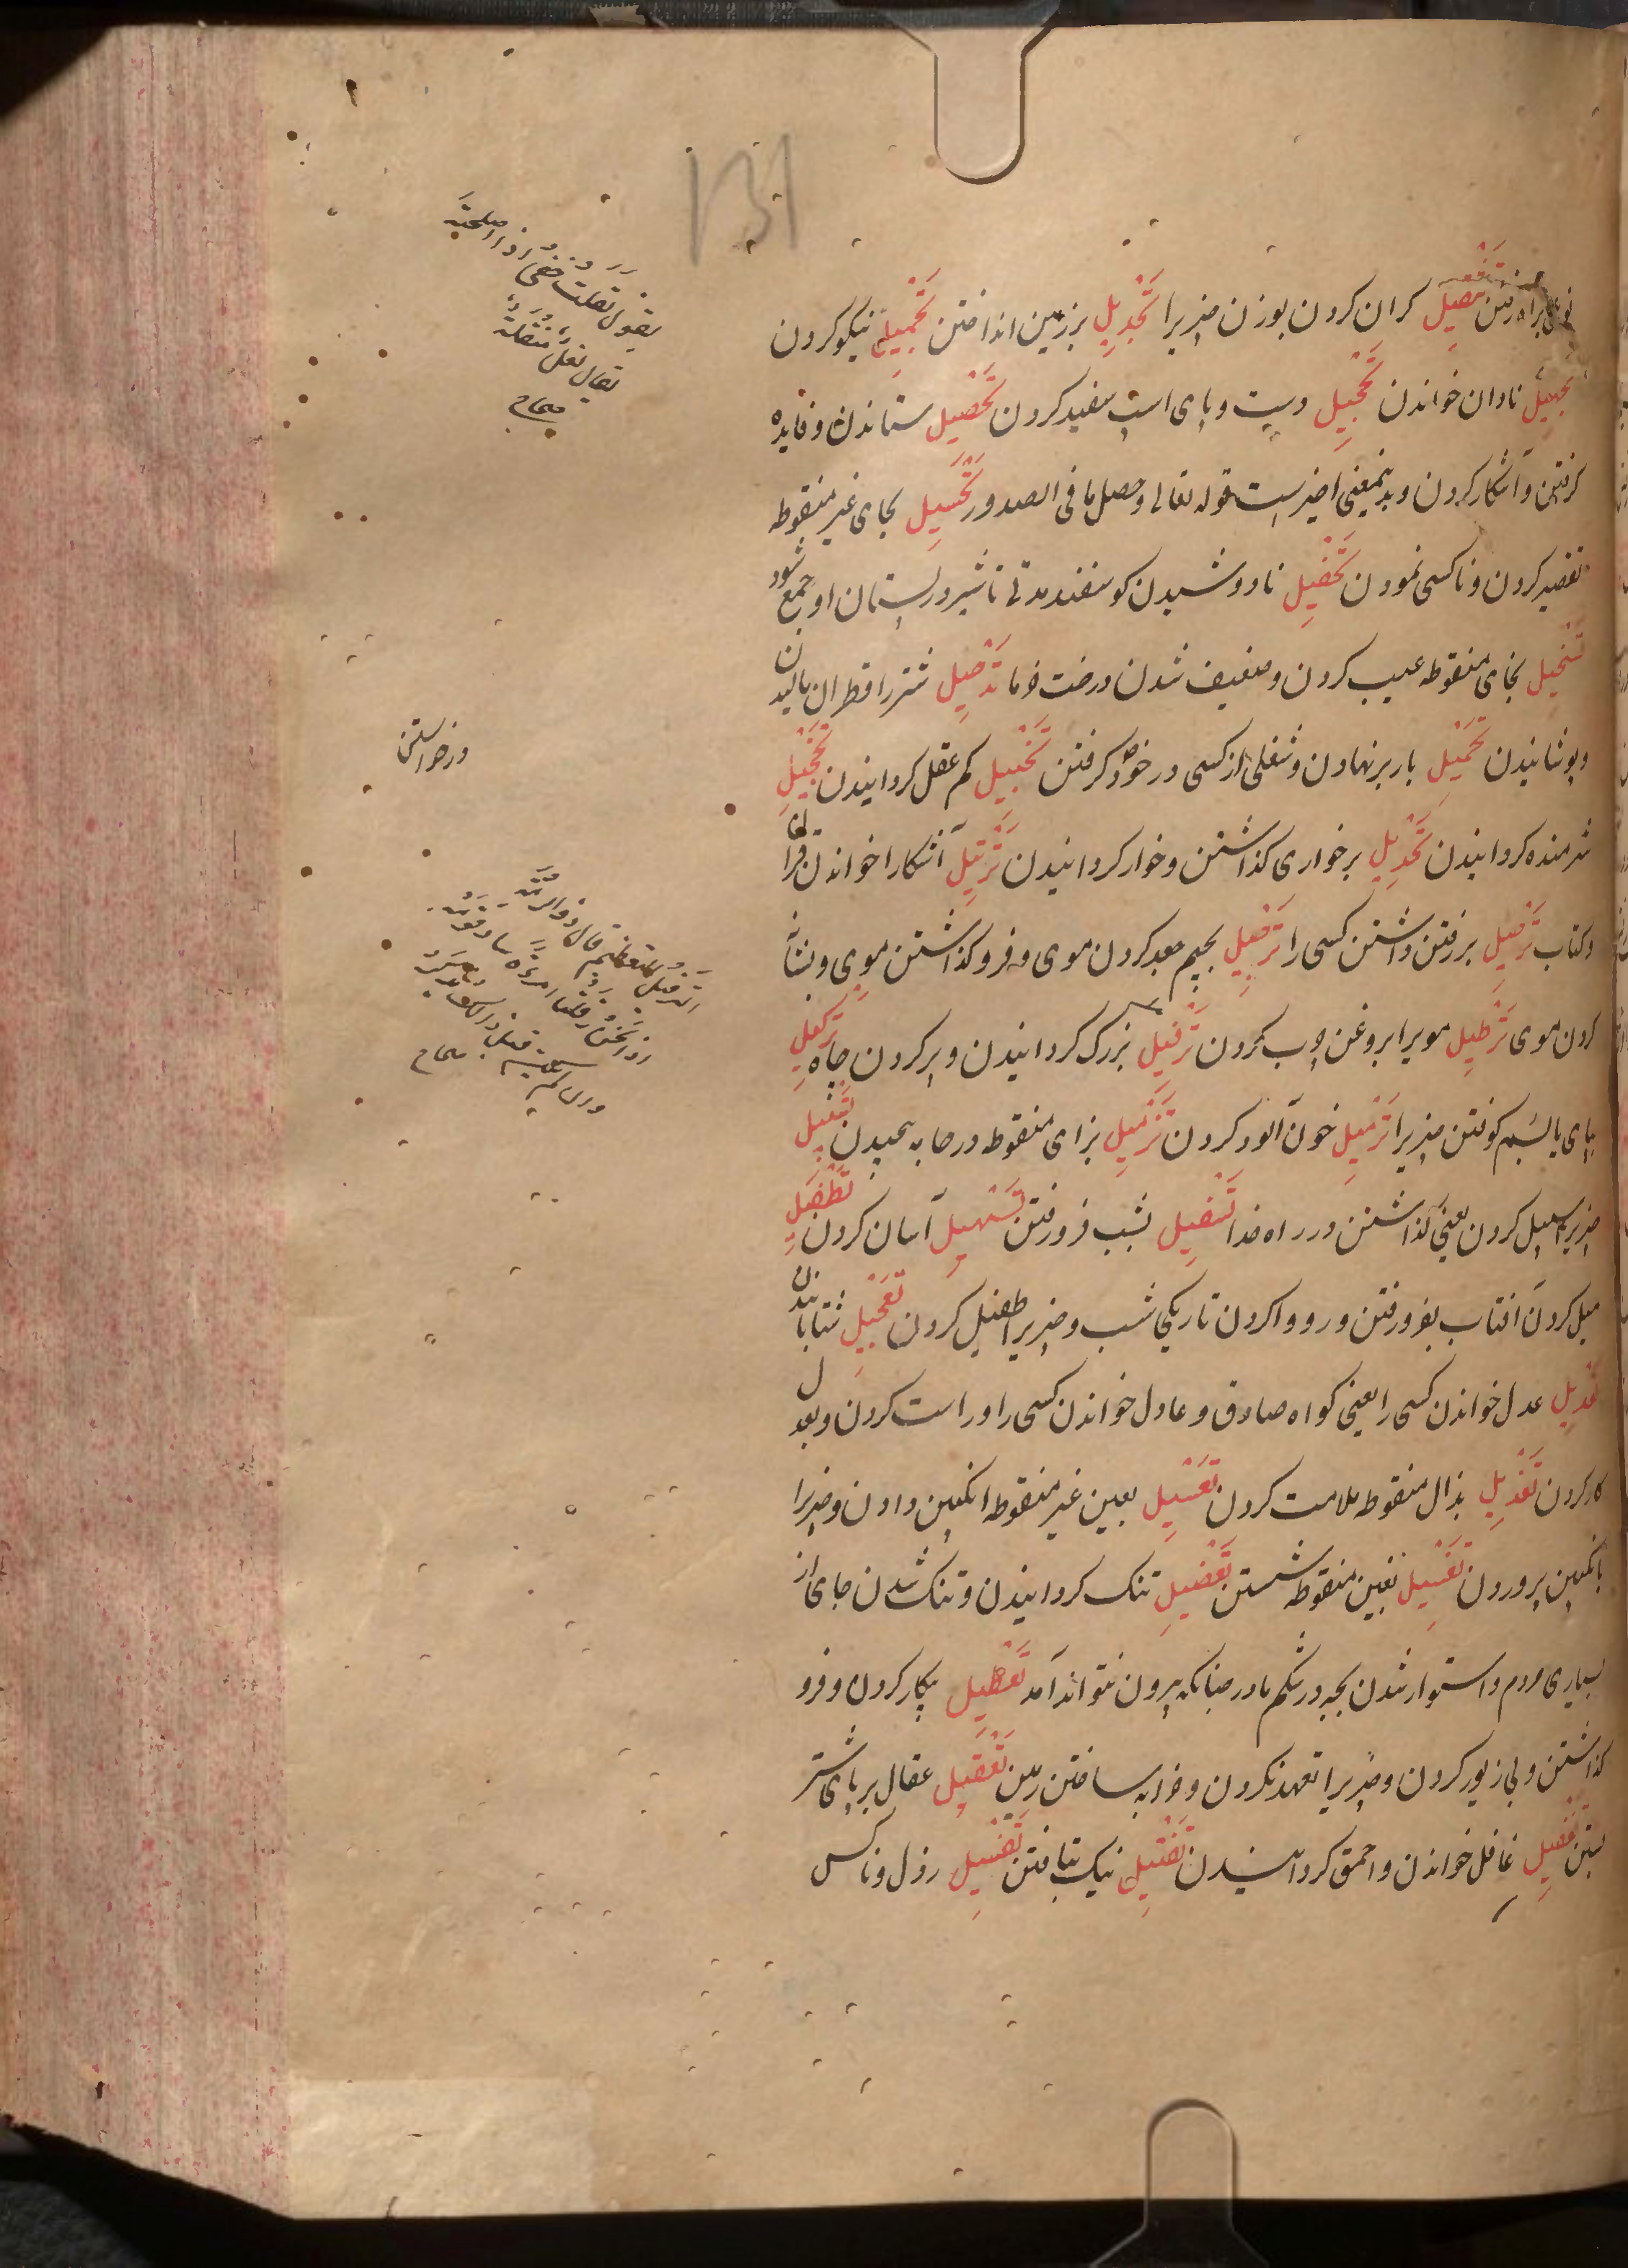 نوعی براه رفتن تثقیل کران کردن بوزن چیزیرا تجدیل بزرمین انداختن تجمیل نیکو کردن
تجهیل نادان خواندن تحجیل دست و پای اسپ سفید کردن تحصیل ستاندن و فایده
کرفتن و آشکار کردن و بدینمعنی اخیرست قوله تعالی وحصل ما فی الصدور تحسیل بحای غیر منقوطه
تقصیر کردن و ناکسی نمودن تحفیل نادوشیدن کوسفند مدتی تا شیر در پستان او جمع شود
تنخیل بخای منقوطه عیب کردن و ضعیف شدن درخت خرما تدجیل شتر را قطران مالیدن
و پوشانیدن تحمیل بار بر نهادن و شغلی از کسی در خود کرفتن تخبیل کم عقل کردانیدن تخجیل
شرمنده کردانیدن تخذیل برخواری کذاشتن و خوار کردانیدن ترتیل آشکارا خواندن قرآن
و کتاب ترحیل بر رفتن داشتن کسی را ترجیل بجیم جعد کردن موی و فرو کذاشتن موی و شانه
کردن موی ترطیل مویرا بروغن چرب کردن ترفیل بزرک کردانیدن و پر کردن چاه ترکیل
پای پاسم کوفتن چیزیرا ترمیل خون آلود کردن تزمیل بزای منقوطه در جامه پیچیدن تسبیل
چیزیرا سبیل کردن یعنی کذاشتن در راه خدا تسفیل نشیب فرو رفتن تسهیل آسان کردن تطفیل
میل کردن آفتاب بفرو رفتن و رو وا کردن تاریکی شب و چیزیرا طفیل کردن تعجیل شتابانیدن
تعدیل عدل خواندن کسی را یعنی کواه صادق و عادل خواندن کسی را و راست کردن و بعدل
کار کردن تعذیل بذال منقوطه ملامت کردن تعسیل بعین غیر منقوطه انکبین دادن و چیزیرا
بانکبین پروردن تغسیل بغین منقوطه شستن تعضیل تنک کردانیدن و تنک شدن جای از
بسیاری مردم و استوار شدن بچه در شکم مادر چنانکه بیرون نتواند آمد تعطیل بیکار کردن و فرو
کذاشتن و بی زیور کردن و چیزیرا تعهد نکردن و خرابه ساختن زمین تعقیل عقال بر پای شتر
بستن تغفیل غافل خواندن و احمق کردانیدن تفتیل نیک بتافتن تفسیل رذل و ناکس
یقول نقلت خفی اذا اصلحته
یقال نعل منقلة
صحاح
درخواستن
الترفیل التعظیم قال ذو الرمة
اذا نحن رفلنا امرءا ساد قومه
صحاح